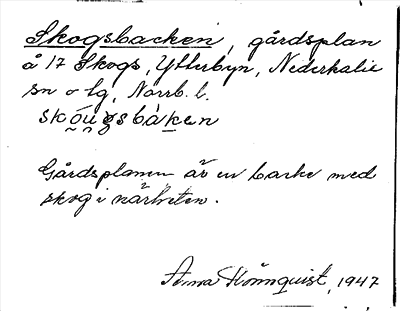 Skogsbacken, gårdsplan
å 17 Skogs, Ytterbyn, Nederkalix
sn o lg, Norrb. l.
skóu̯gsbàken
Gårdsplanen är en backe med
skog i närheten.
Anna Rönnquist, 1947